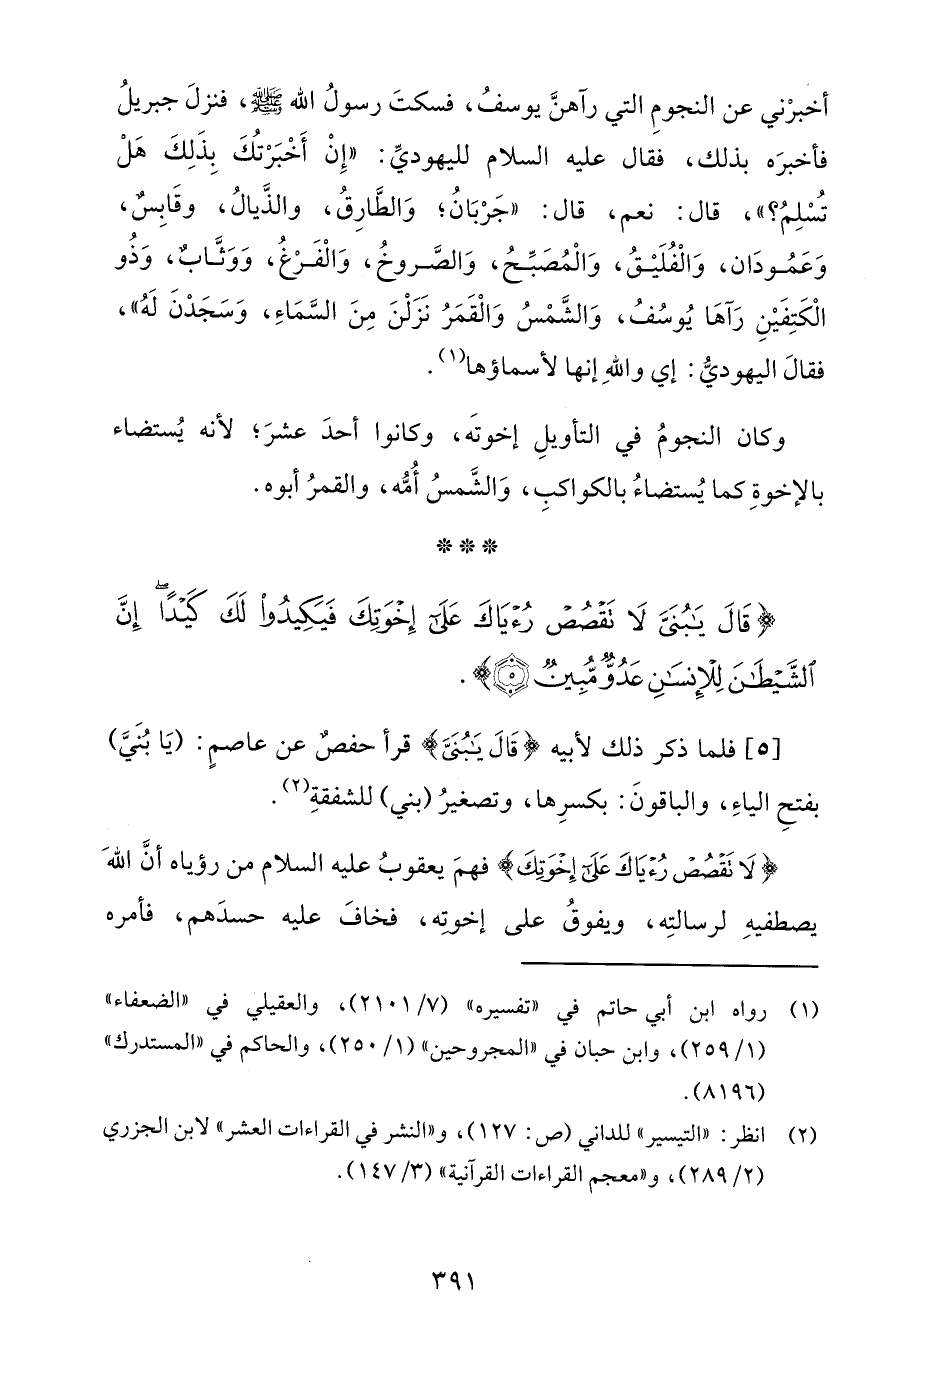 أخبرْني عن النجومِ التي رآهنَّ يوسفُ، فسكتَ رسولُ الله ﷺ، فنزلَ جبريلُ
فأخبرَه بذلك، فقال عليه السلام لليهوديِّ: «إِنْ أَخْبَرْتُكَ بِذَلِكَ هَلْ
تُسْلِمُ؟»، قال: نعم، قال: «جَرْبَانُ؛ وَالطَّارِقُ، والذَّيالُ، وقَابِسٌ،
وَعَمُودَان، وَالْفُلَيْقُ، وَالْمُصَبِّحُ، وَالصَّروخُ، وَالْفَرْغُ، وَوَثَّابٌ، وَذُو
الْكَتِفَيْنِ رَآهَا يُوسُفُ، وَالشَّمْسُ وَالْقَمَرُ نَزَلْنَ مِنَ السَّمَاءِ، وَسَجَدْنَ لَهُ»،
فقالَ اليهوديُّ: إي واللهِ إنها لأسماؤها(١).
وكان النجومُ في التأويلِ إخوتَه، وكانوا أحدَ عشرَ؛ لأنه يُستضاء
بالإخوةِ كما يُستضاءُ بالكواكبِ، وَالشَّمسُ أُمُّه، والقمرُ أبوه.
* * *
﴿قَالَ يَٰبُنَىَّ لَا تَقْصُصْ رُءْيَاكَ عَلَىٰٓ إِخْوَتِكَ فَيَكِيدُوا۟ لَكَ كَيْدًا ۖ إِنَّ
ٱلشَّيْطَٰنَ لِلْإِنسَٰنِ عَدُوٌّ مُّبِينٌ ۝٥﴾.
[٥] فلما ذكر ذلك لأبيه ﴿قَالَ يَٰبُنَىَّ﴾ قرأ حفصٌ عن عاصمٍ: (يَا بُنَيَّ)
بفتحِ الياءِ، والباقونَ: بكسرِها، وتصغيرُ (بني) للشفقةِ(٢).
﴿لَا تَقْصُصْ رُءْيَاكَ عَلَىٰٓ إِخْوَتِكَ﴾ فهمَ يعقوبُ عليه السلام من رؤياه أنَّ اللهَ
يصطفيهِ لرسالتِه، ويفوقُ على إخوتِه، فخافَ عليه حسدَهم، فأمره
(١) رواه ابن أبي حاتم في «تفسيره» (٧/ ٢١٠١)، والعقيلي في «الضعفاء»
(١/ ٢٥٩)، وابن حبان في «المجروحين» (١/ ٢٥٠)، والحاكم في «المستدرك»
(٨١٩٦).
(٢) انظر: «التيسير» للداني (ص: ١٢٧)، و«النشر في القراءات العشر» لابن الجزري
(٢/ ٢٨٩)، و«معجم القراءات القرآنية» (٣/ ١٤٧).
٣٩١